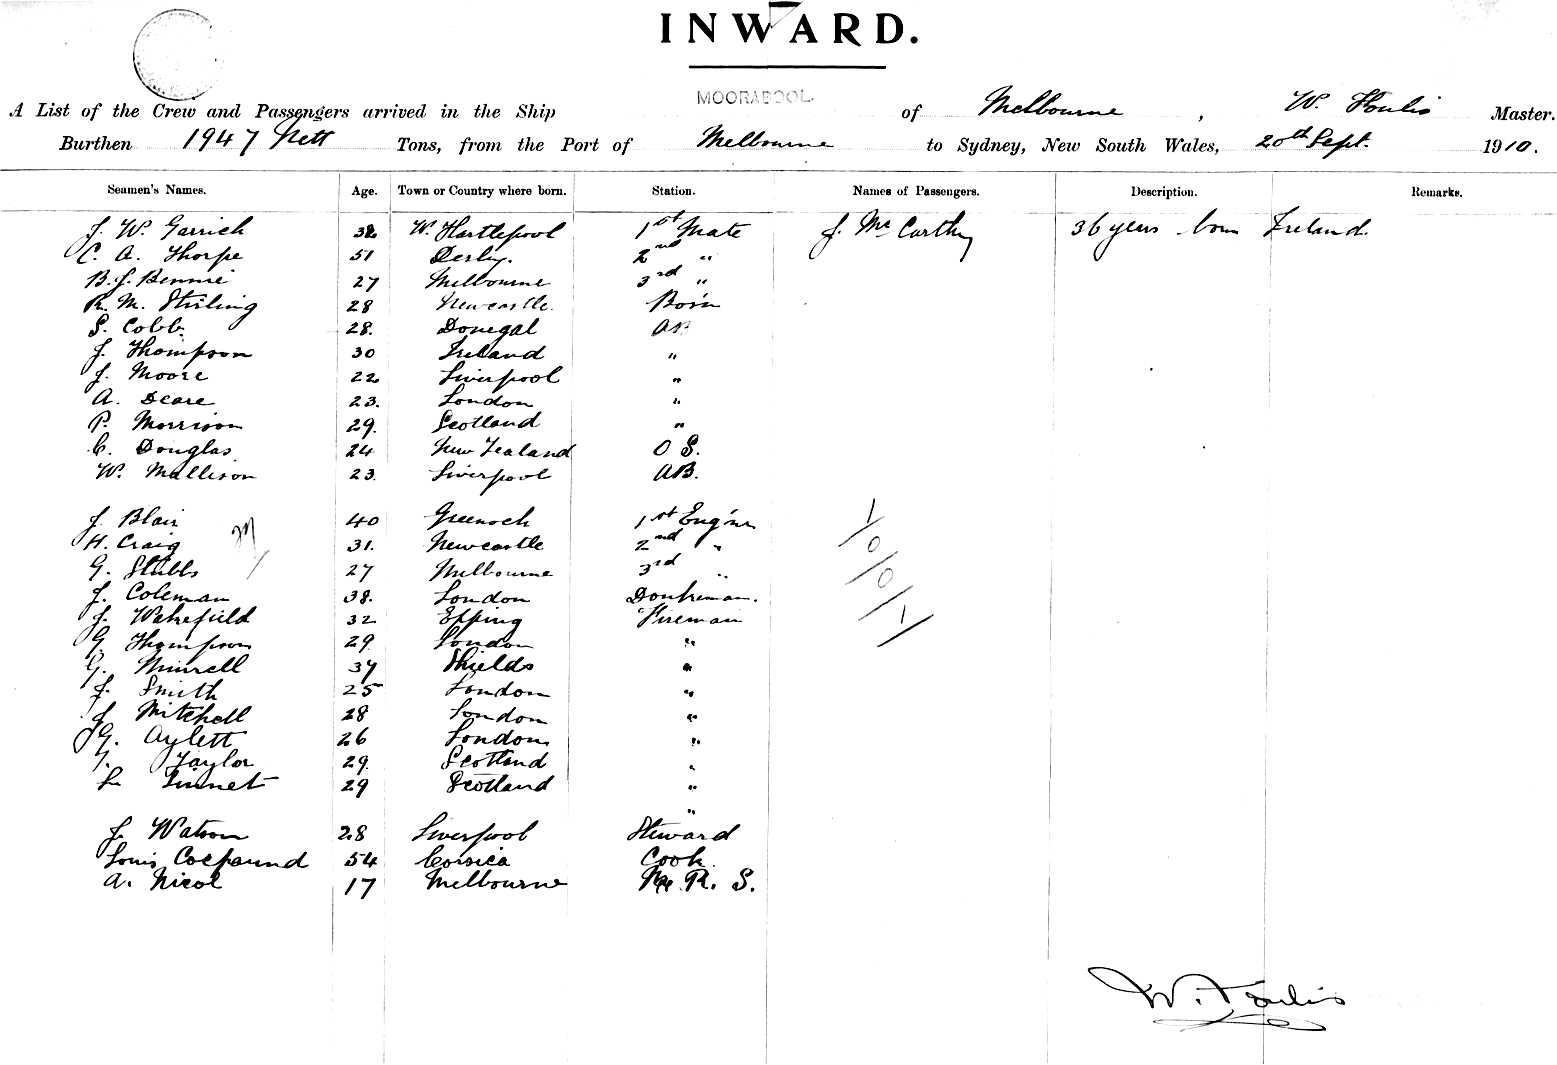 INWARD.
A List of the Crew and Passengers arrived in the Ship MOORABOOL of Melbourne, W. Foulis Master.
Burthen 1947 Nett Tons, from the Port of Melbourne to Sydney, New South Wales, 20th Sept. 1910.
Seamen's Names. Age. Town or Country where born. Station. Names of Passengers. Description. Remarks.
J. W. Garrick 32 W. Hartlepool 1st Mate J. McCarthy 36 years born Ireland
C. A. Thorpe 51 Derby. 2nd "
B. J. Bennie 27 Melbourne 3rd "
R. M. Stirling 28 Newcastle. Bos'n
S. Cobb. 28. Donegal AB
J. Thompson 30 Ireland "
J. Moore 22 Liverpool "
A. Deare 23. London "
P. Morrison 29. Scotland "
C. Douglas. 24 New Zealand O S.
W. Mallison 23. Liverpool AB.
J. Blair 40 Greenock 1st Eng'nr
H. Craig 31. Newcastle 2nd "
G. Stubbs 27 Melbourne 3rd "
J. Coleman 38. London Donkeman.
J. Wakefield 32 Epping Fireman
G. Thompson 29. London "
G. Munsell 37 Shields "
J. Smith 25 London "
J. Mitchell 28 London "
G. Aylett 26 London "
Taylor 29. Scotland "
L. Linnet 29 Scotland "
"
J. Watson 28 Liverpool Steward
Louis 54 Corsica Cook.
A. Nicol 17 Melbourne M. R. S.
W. Foulis